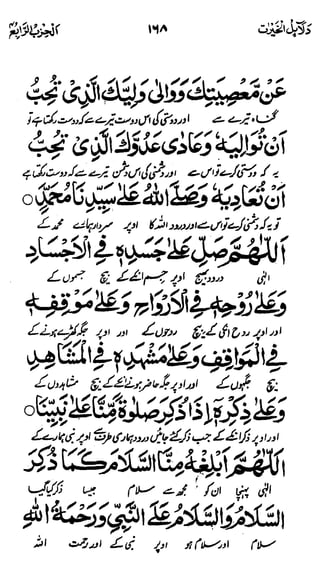 دلائل الخیرت ۱۶۸ الحزب الرابع
عَنْ مَّعْصِيَتِكَ وَوَالٰى وَلِيَّكَ الَّذِىْ تُحِبُّ
گناہ تیرے سے اور دوستی کی اس دوست تیرے سے کہ دوست رکھتا ہے تو
اَنْ تُوَالِيَهٗ وَعَادٰى عَدُوَّكَ الَّذِىْ تُحِبُّ
یہ کہ دوستی کرے تو اس سے اور دشمنی کی اس دشمن تیرے سے کہ دوست رکھتا ہے
اَنْ تُعَادِيَهٗ وَصَلَّى اللّٰهُ عَلٰى سَيِّدِنَا مُحَمَّدٍ ○
تو یہ کہ دشمنی کرے تو اس سے اور درود اللہ کا اوپر سردار ہمارے محمد کے
اَللّٰهُمَّ صَلِّ عَلٰى جَسَدِهٖ فِى الْاَجْسَادِ
الٰہی درود بھیج اوپر جسم انکے کے بیچ جسموں کے
وَعَلٰى رُوْحِهٖ فِى الْاَرْوَاحِ وَعَلٰى مَوْقِفِهٖ
اور اوپر روح انکی کے بیچ روحوں کے اور اوپر جگہ کھڑے ہونے کے
فِى الْمَوَاقِفِ وَعَلٰى مَشْهَدِهٖ فِى الْمَشَاهِدِ
بیچ جگہوں کے اور اوپر جگہ حاضر ہونے انکے کے بیچ مشاہدوں کے
وَعَلٰى ذِكْرِهٖ اِذَا ذُكِرَ صَلٰوةً مِّنَّا عَلٰى نَبِيِّنَا ○
اور اوپر ذکر انکے کے جب ذکر کئے جائیں درود ہماری طرف سے اوپر نبی ہمارے کے
اَللّٰهُمَّ اَبْلِغْهُ مِنَّا السَّلَامَ كَمَا ذُكِرَ
الٰہی پہنچا ان کو ہم سے سلام جیسا ذکر کیا گیا
السَّلَامُ وَالسَّلَامُ عَلَى النَّبِىِّ وَرَحْمَةُ اللّٰهِ
سلام اور سلام ہو اوپر نبی کے اور رحمت اللہ